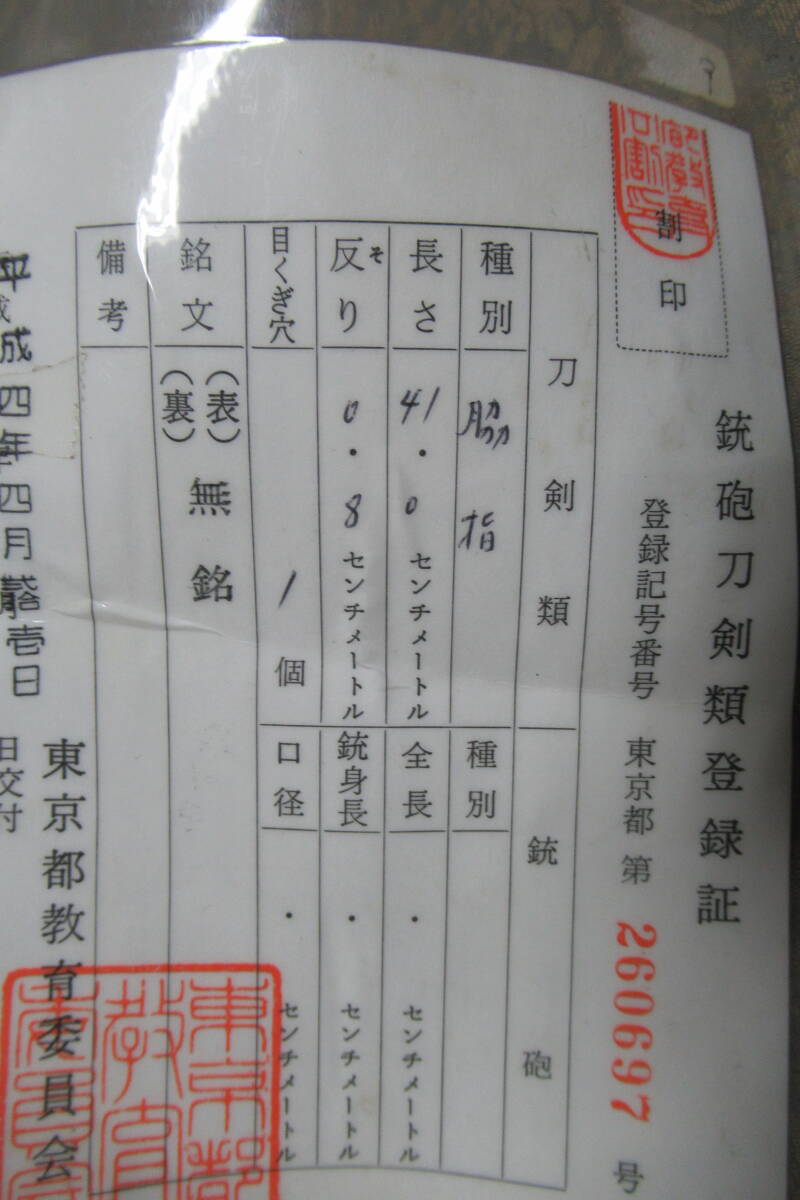 割印
銃砲刀剣類登録証
登録記号番号 東京都 第 260697 号
刀剣類
種別 脇指
長さ 41.0 センチメートル
反り そ 0.8 センチメートル
目くぎ穴 1 個
銘文 (表) 無銘
(裏)
備考
銃砲
種別
全長 ・ センチメートル
銃身長 ・ センチメートル
口径 ・ センチメートル
平成四年四月壱日
日交付
東京都教育委員会